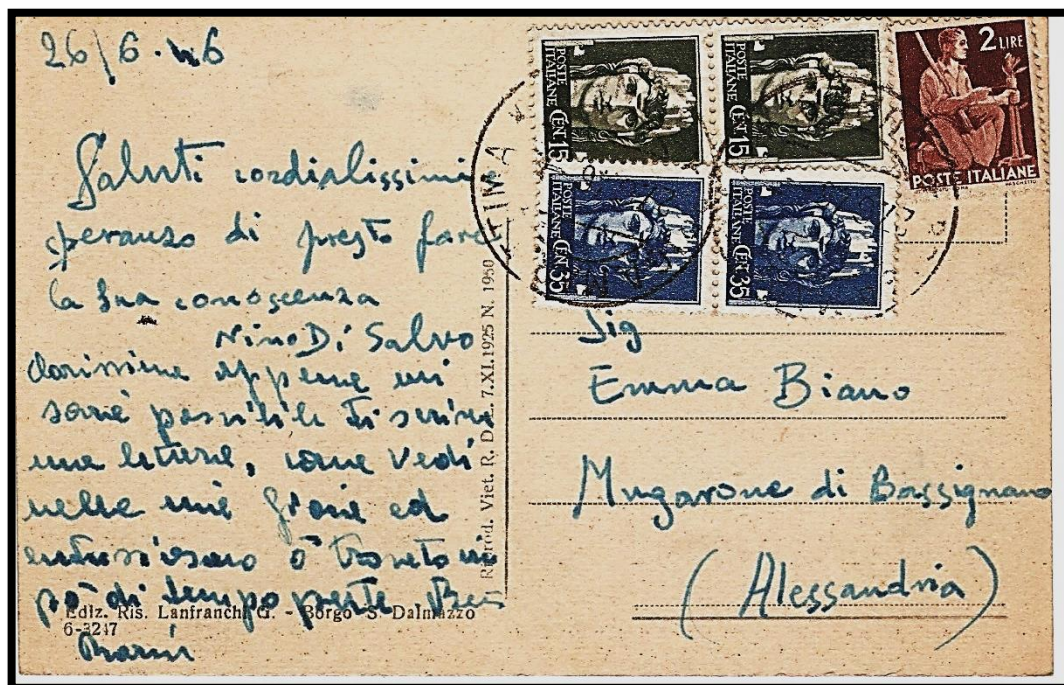 26/6·46
Saluti cordialissimi
speranzo di presto fare
la Sua conoscenza
Nino Di Salvo
Carissima appena mi
sarà possibile ti scrivo
una lettera, come vedi
nella mia gioia ed
entusiasmo ò trovato un
pò di tempo per te
Ediz. Ris. Lanfranchi G. - Borgo S. Dalmazzo
6-3247
Riprod. Viet. R. D. L. 7.XI.1925 N. 1950
POSTE
ITALIANE
CEN. 15
POSTE
ITALIANE
CEN. 15
2 LIRE
POSTE ITALIANE
POSTE
ITALIANE
CEN. 35
POSTE
ITALIANE
CEN. 35
Sig
Emma Biano
Mugarone di Bassignano
(Alessandria)